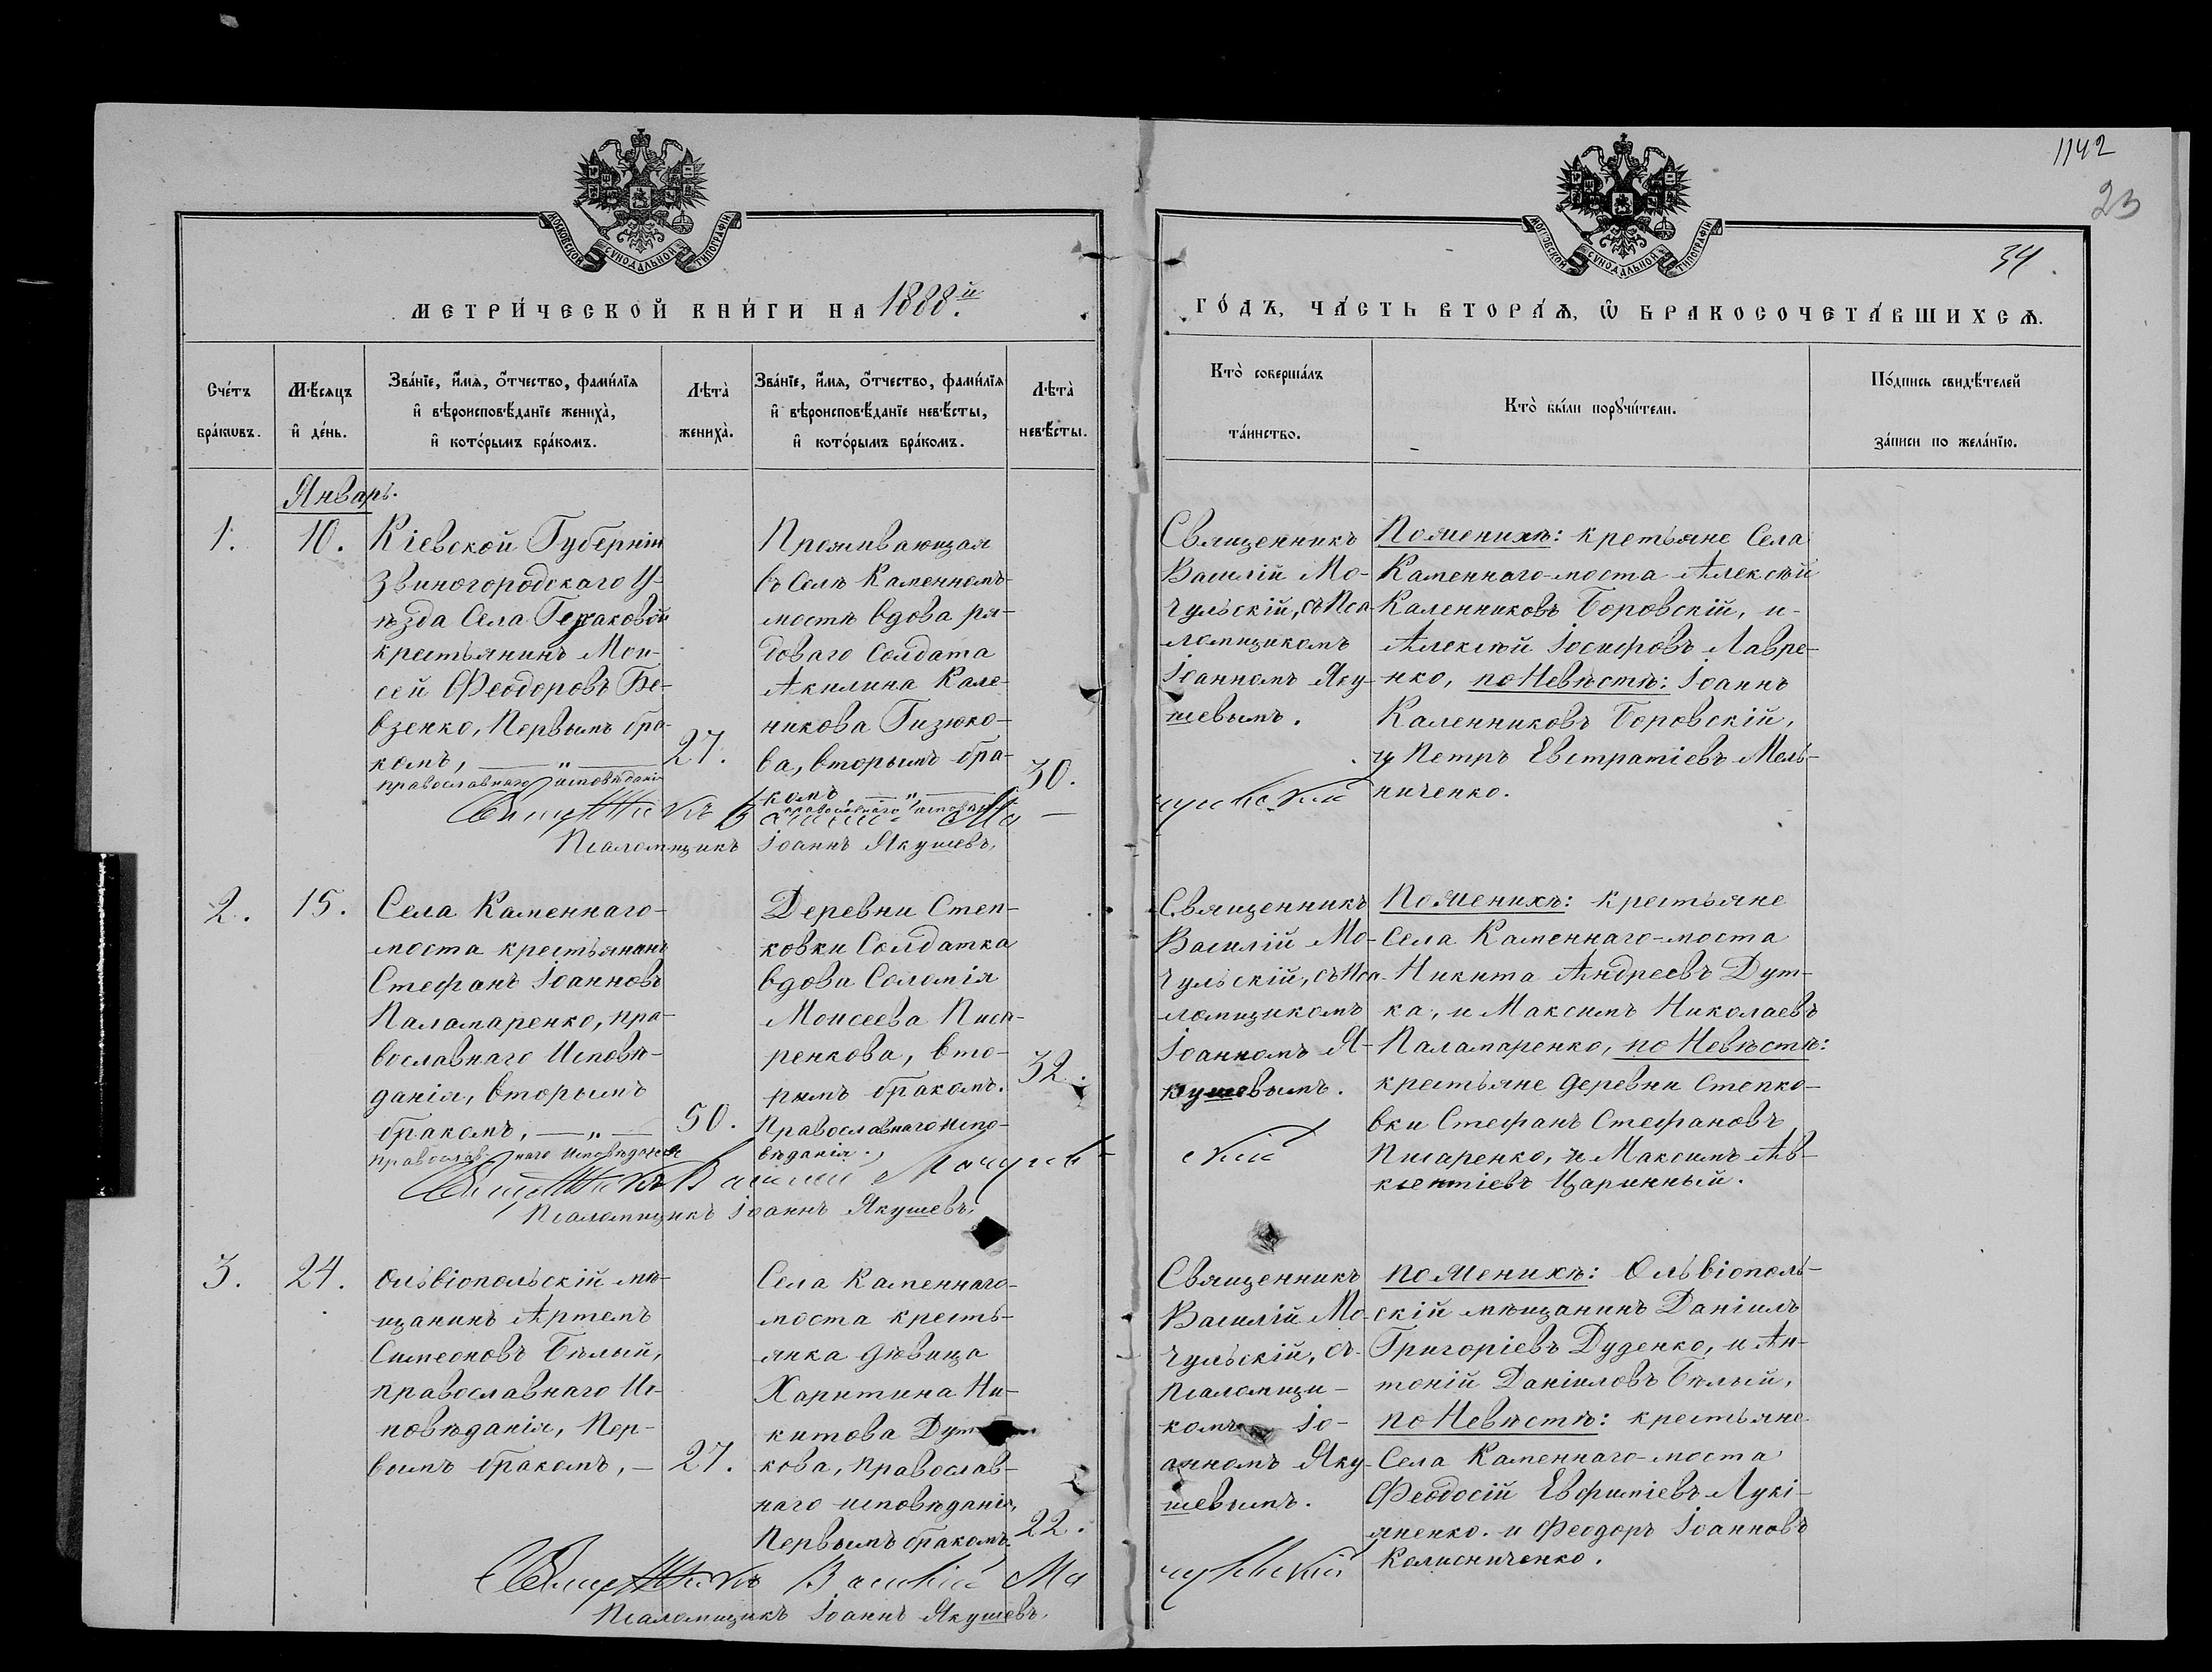 1142
23
34.
МОСКОВСКОЙ СѴНОДАЛЬНОЙ ТИПОГРАФІИ
МОСКОВСКОЙ СѴНОДАЛЬНОЙ ТИПОГРАФІИ
МЕТРИ́ЧЕСКОЙ КНИ́ГИ НА 1888.й
ГО́ДЪ, ЧА́СТЬ ВТОРА́Ѧ, Ѡ҆ БРАКОСОЧЕТА́ВШИХСѦ.
Сче́тъ
бра́кѡвъ.
Мѣ́сѧцъ
и҆ де́нь.
Зва́нїе, и҆́мѧ, о҆́тчество, фами́лїѧ
и҆ вѣроисповѣ́данїе жениха̀,
и҆ кото́рымъ бра́комъ.
Лѣта̀
жениха̀.
Зва́нїе, и҆́мѧ, о҆́тчество, фами́лїѧ
и҆ вѣроисповѣ́данїе невѣ́сты,
и҆ кото́рымъ бра́комъ.
Лѣта̀
невѣ́сты.
Кто̀ соверша́лъ
та́инство.
Кто̀ бы́ли порꙋчи́тели.
По́дпись свидѣ́телей
за́писи по жела́нїю.
Январь.
1.
10.
Кіевской Губерніи
Звиногородскаго У-
ѣзда Села
крестьянинъ Мои-
сей Феодоровъ Бе-
взенко, Первымъ бра-
комъ, — „ —
православнаго исповѣданія
27.
Проживающая
въ Селѣ Каменномъ-
мостѣ вдова ря-
доваго Солдата
Акилина Кале-
никова Гизюко-
ва, вторымъ бра-
комъ — „ —
православнаго исповѣд.
30.
Священникъ
Василій Мо-
чульскій, съ Пса-
ломщикомъ
Іоанномъ Яку-
шевымъ.
По Женихѣ: кретьяне Села
Каменнаго-моста Алексѣй
Каленниковъ Боровскій, и-
Алексѣй Іосифовъ Лавре-
нко, по Невѣстѣ: Іоаннъ
Каленниковъ Боровскій,
и Петръ Евстратіевъ Мель-
ниченко.
Священникъ Василій Мочульскій
Псаломщикъ Іоаннъ Якушевъ,
2.
15.
Села Каменнаго-
моста крестьянинъ
Стефанъ Іоанновъ
Паламаренко, пра-
вославнаго Исповѣ-
данія, вторымъ
бракомъ, — „ —
православнаго Исповѣданія
50.
Деревни Степ-
ковки Солдатка
вдова Соломія
Моисеева Писа-
ренкова, вто-
рымъ бракомъ.
Православнаго испо-
вѣданія.,
32.
Священникъ
Василій Мо-
чульскій, съ Пса-
ломщикомъ
Іоанномъ Я-
кушевымъ.
По Женихѣ: крестьяне
Села Каменнаго-моста
Никита Андреевъ Дут-
ка, и Максимъ Николаевъ
Паламаренко, по Невѣстѣ:
крестьяне деревни Степко-
вки Стефанъ Стефановъ
Писаренко, и Максимъ Ав-
ксентіевъ Царинный.
Священникъ Василій Мочульскій
Псаломщикъ Іоаннъ Якушевъ.
3.
24.
Ольвіопольскій мѣ-
щанинъ Артемъ
Симеоновъ Бѣлый,
православнаго Ис-
повѣданія, Пер-
вымъ бракомъ, —
27.
Села Каменнаго-
моста кресть-
янка дѣвица
Харитина Ни-
китова Дут-
кова, православ-
наго исповѣданія,
Первымъ бракомъ.
22.
Священникъ
Василій Мо-
чульскій, съ-
Псаломщи-
комъ Іо-
анномъ Яку-
шевымъ.
по Женихѣ: Ольвіополь-
скій мѣщанинъ Даніилъ
Григоріевъ Дуденко, и Ан-
тоній Даніиловъ Бѣлый,
по Невѣстѣ: крестьяне
Села Каменнаго-моста
Феодосій Евфиміевъ Лукі-
яненко. и Феодоръ Іоанновъ
Колисниченко.
Священникъ Василій Мочульскій
Псаломщикъ Іоаннъ Якушевъ.